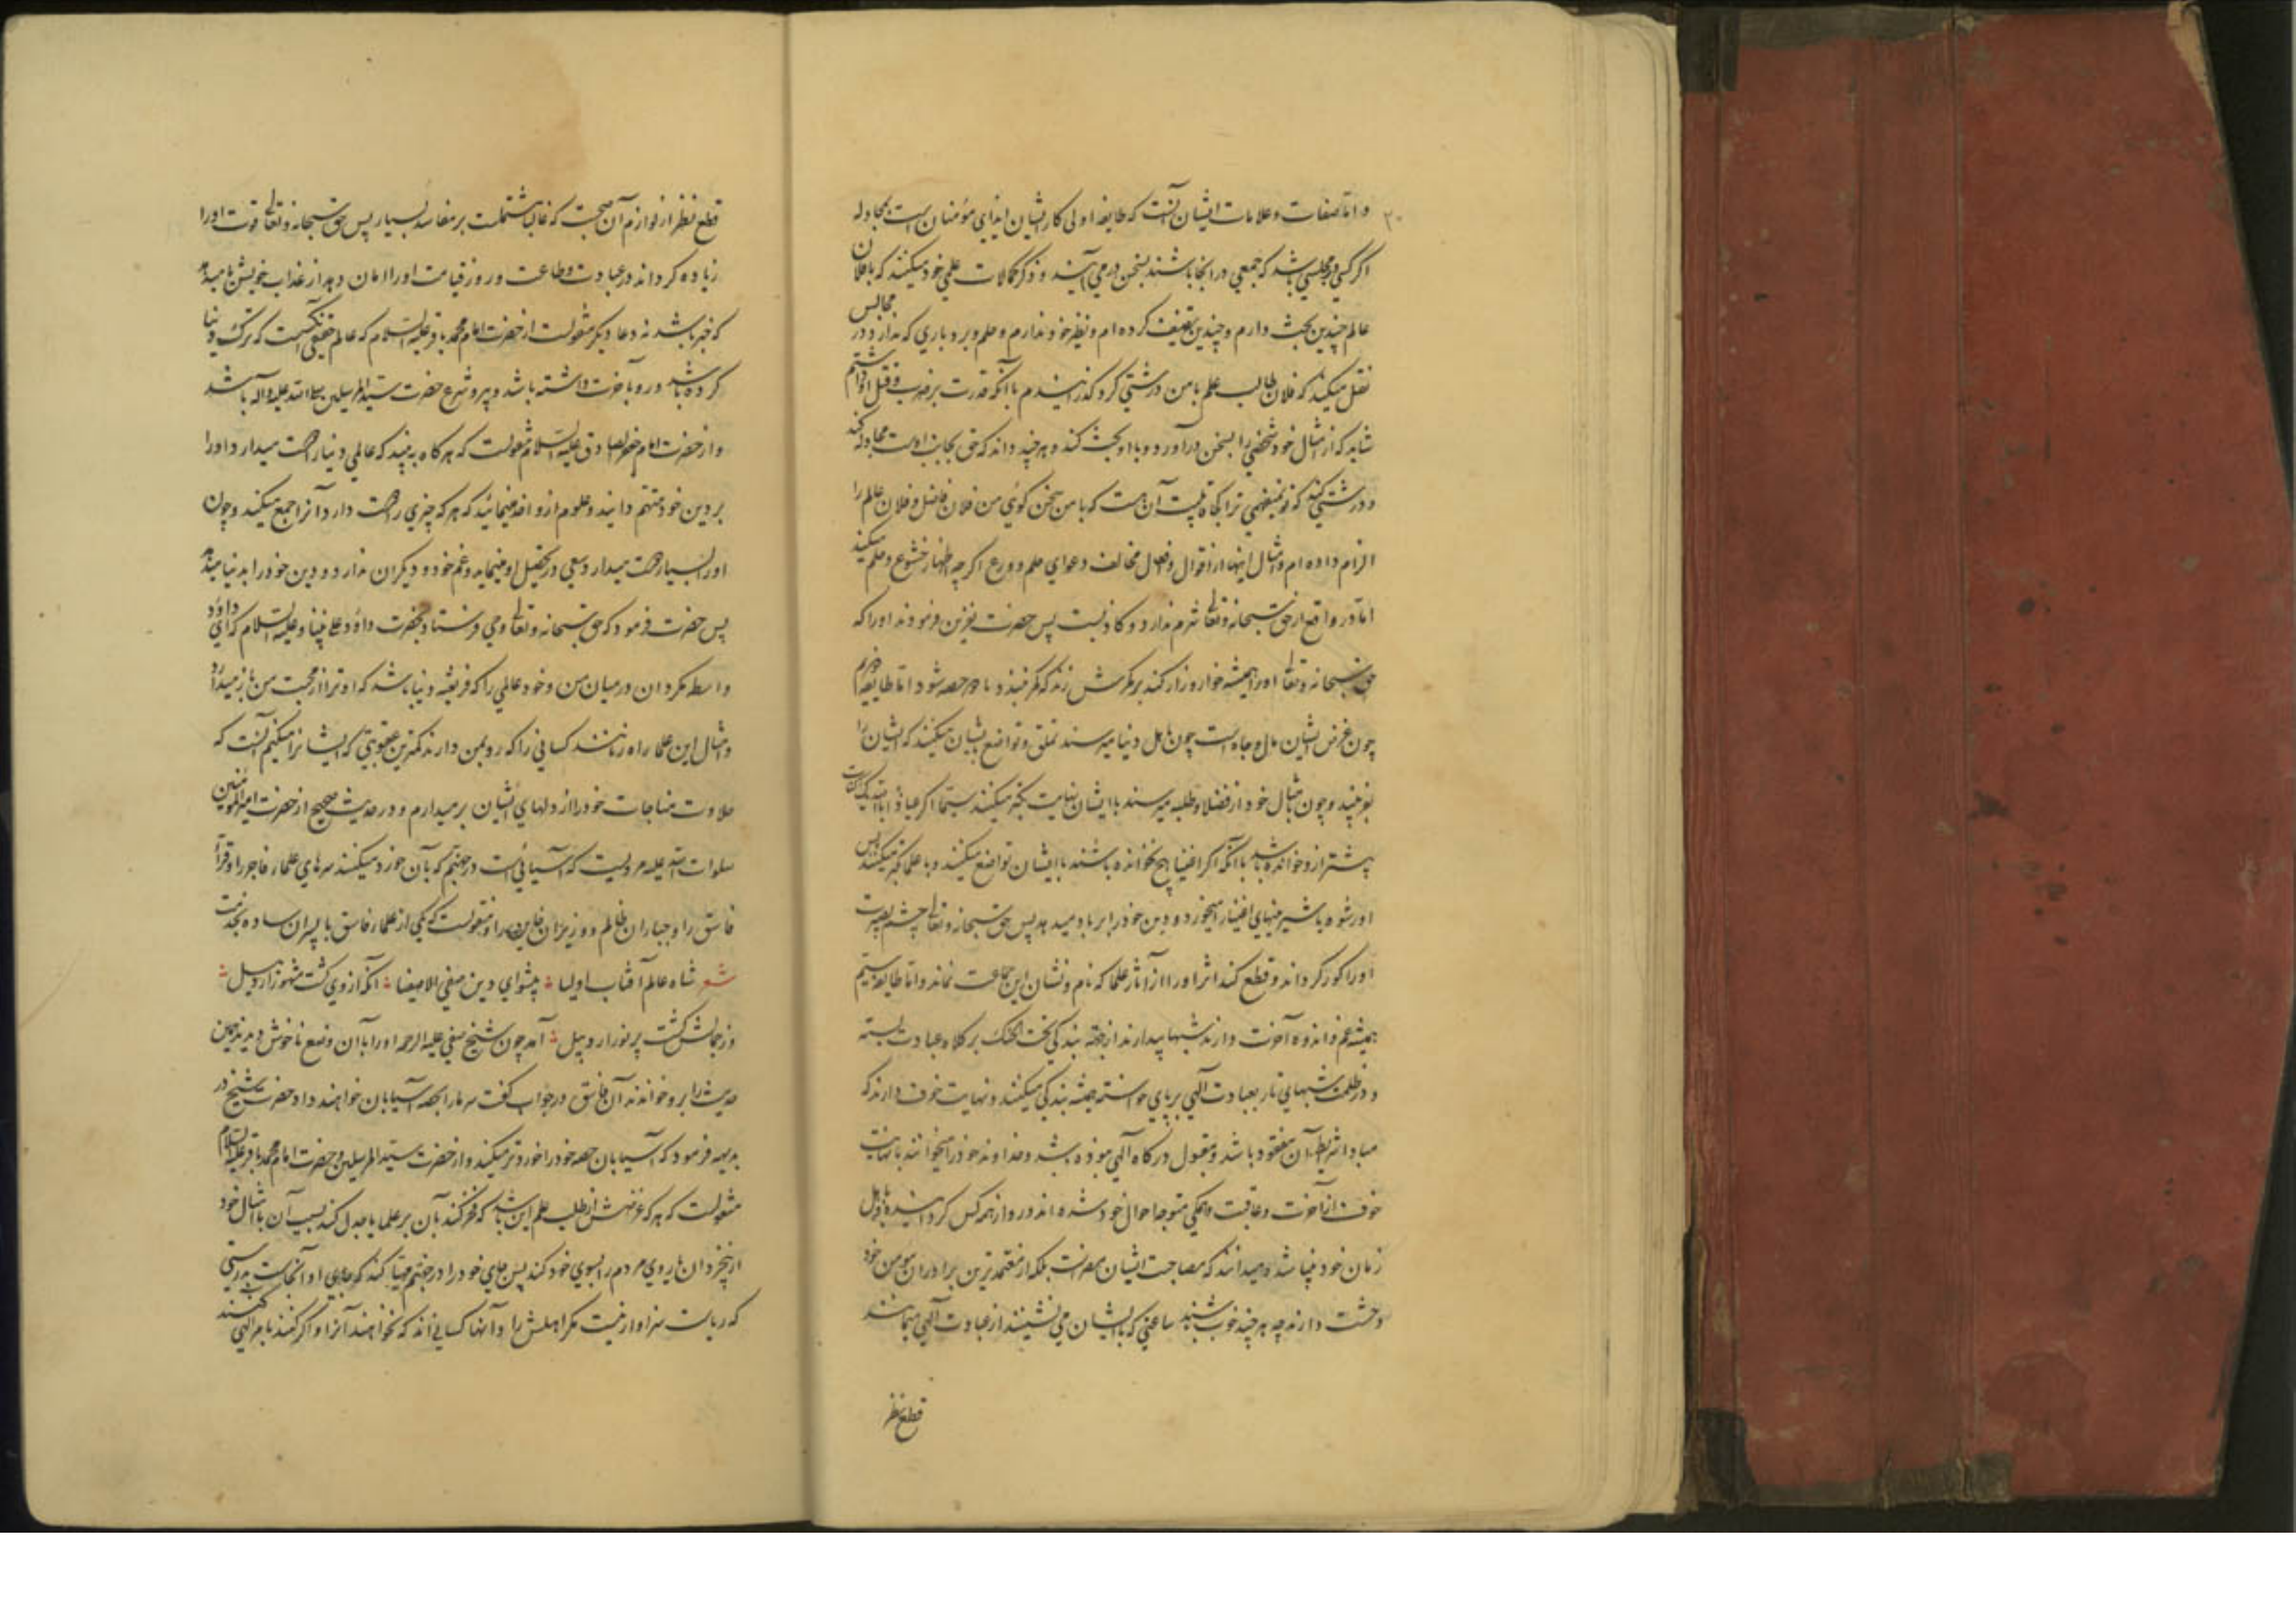 و اما صفات و علامات ایشان آنست که طایفه اولی کار ایشان ایذای مؤمنان است بمجادله
اگر کسی در مجلسی باشد که جمعی در انجا باشند بسخن درمی آیند و ذکر کمالات علمی خود میکنند که با فلان
عالم چندین بحث دارم و چندین تصنیف کرده ام و نظیر خود ندارم و حلم و بردباری که ندارد در مجالس
نقل میکند که فلان طالب علم با من درشتی کرد گذرانیدم با آنکه قدرت بر ضرب و قتل او داشتم
شاید که از امثال خود شخصی را بسخن درآورد و با او بحث کند و هر چند داند که حق بجانب اوست مجادله کند
و درشتی کند که تو نمیفهمی ترا کجا قابلیت آن هست که با من سخن کوئی من فلان فاضل و فلان عالم را
الزام داده ام و امثال اینها از اقوال و افعال مخالف دعوای حلم و ورع اگر چه اظهار خشوع و حلم میکند
اما در واقع از حق سبحانه و تعالی شرم ندارد و کاذبست پس حضرت نفرین فرمودند او را که
حق سبحانه و تعالی او را همیشه خوار و زار کند بر کمرش زند که کمر نبندد اما طایفه دویم
چون غرض ایشان مال و جاه است چون باهل دنیا میرسند تملق و تواضع بایشان میکنند که ایشان را
بفریبند و چون بامثال خود از فضلا و طلبه میرسند با ایشان نهایت تکبر میکنند سیما اگر
پیشتر ازو خوانده باشد با آنکه اگر اغنیا هیچ نخوانده باشند با ایشان تواضع میکنند و با علما تکبر میکنند پس
او رشوه یا شیرینیهای اغنیا را میخورد و دین خود را بر باد میدهد پس حق سبحانه و تعالی چشم بصیرت
او را کور گرداند و قطع کند اثر او را از آثار علما که نام و نشان این جماعت نماند و اما طایفه سیم
همیشه غم و اندوه آخرت دارند شبها بیدارند از جهة بندگی تحت الحنک بر کلاه عبادت بسته
و در ظلمت شبهای تار بعبادت الهی بر پای خواسته همیشه بندگی میکنند و نهایت خوف دارند که
مبادا شرایط آن مفقود باشد و مقبول درگاه الهی نبوده باشد و خداوند خود را میخوانند با نهایت
خوف از آخرت و عاقبت و همگی متوجه احوال خود شده اند و رو از همه کس گردانیده با اهل
زمان خود آشنا شده میدانند که مصاحبت ایشان مضر است بلکه از معتمدترین برادران مؤمن خود
وحشت دارند چه هر چند خوب باشند ساعتی که با ایشان می نشینند از عبادت الهی میمانند
قطع نظر
قطع نظر از لوازم آن صحبت که غالبا مشتملست بر مفاسد بسیار پس حق سبحانه و تعالی قوت او را
زیاده گرداند در عبادت و طاعت و روز قیامت او را امان دهد از عذاب خویش تا میداند
که خبر باشد نه دعا و یکر منقولست از حضرت امام محمد باقر علیه السلام که عالم حقیقی آنکسیست که ترک دنیا
کرده باشد و رو بآخرت داشته باشد و پیرو شرع حضرت سید المرسلین صلی الله علیه و آله باشد
و از حضرت امام جعفر صادق علیه السلام منقولست که هر گاه ببینید که عالمی دنیا را دوست میدارد او را
بر دین خود متهم دانید و علوم ازو اخذ منمائید که هر که چیزی را دوست دارد آنرا جمع میکند و چون
او را بسیار دوست میدارد سعی در تحصیل او مینماید و غم خود و دیگران ندارد و دین خود را بدنیا میدهد
پس حضرت فرمود که حق سبحانه و تعالی وحی فرستاد بحضرت داؤد علی نبینا و علیه السلام که ای داؤد
واسطه مگردان در میان من و خود عالمی را که فریفته دنیا باشد که او ترا از محبت من باز میدارد
و امثال این علما راه زنانند کسانی را که رو بمن دارند کمترین عقوبتی که ایشانرا میکنم آنست که
حلاوت مناجات خود را از دلهای ایشان برمیدارم و در حدیث صحیح از حضرت امیر المؤمنین
صلوات الله علیه مرویست که آسیائی است در جهنم که بآن خورد میکنند سرهای علماء فاجر را و قراء
فاسق را و جباران ظالم و وزیران خاین را و منقولست که یکی از علماء فاسق با پسران ساده بخدمت
شعر شاه عالم آفتاب اولیا ؛ پیشوای دین صفی الاصفیا ؛ آنکه از وی گشت مشهور اردبیل ؛
وز جمالش گشت پر نور اردبیل ؛ آمد چون شیخ صفی علیه الرحمه او را با آن وضع ناخوش دیدند همین
حدیث را برو خواندند آن فاسق در جواب گفت سر ما را بکجه آسیابان خواهند داد حضرت شیخ در
بدیهه فرمود که آسیابان حصه خود را خوردتر میکند و از حضرت سید المرسلین و حضرت امام محمد باقر علیه السلام
منقولست که هر که غرضش از طلب علم این باشد که فخر کند بآن بر علما یا جدل کند بسبب آن با امثال خود
از بیخردان یا روی مردم را بسوی خود کند پس جای خود را در جهنم مهیا کند که جای او آنجاست بدرستی
که ریاست سزاوار نیست مگر اهلش را و آنها کسانی اند که نخواهند آنرا و اگر کنند بامر الهی کنند